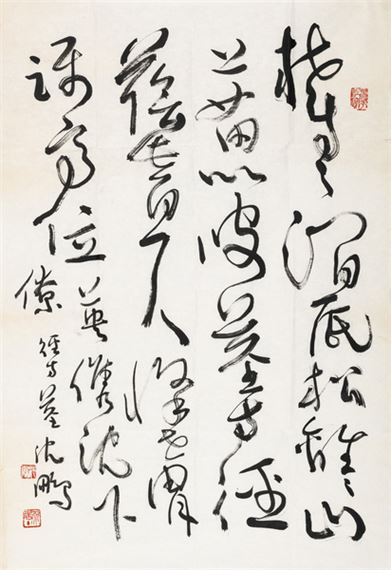 鬱々澗底松離々山
上苗以彼莖寸徑
蔭此百尺條世胄
躡高位英俊沈下
僚 徑寸莖 沈鵬